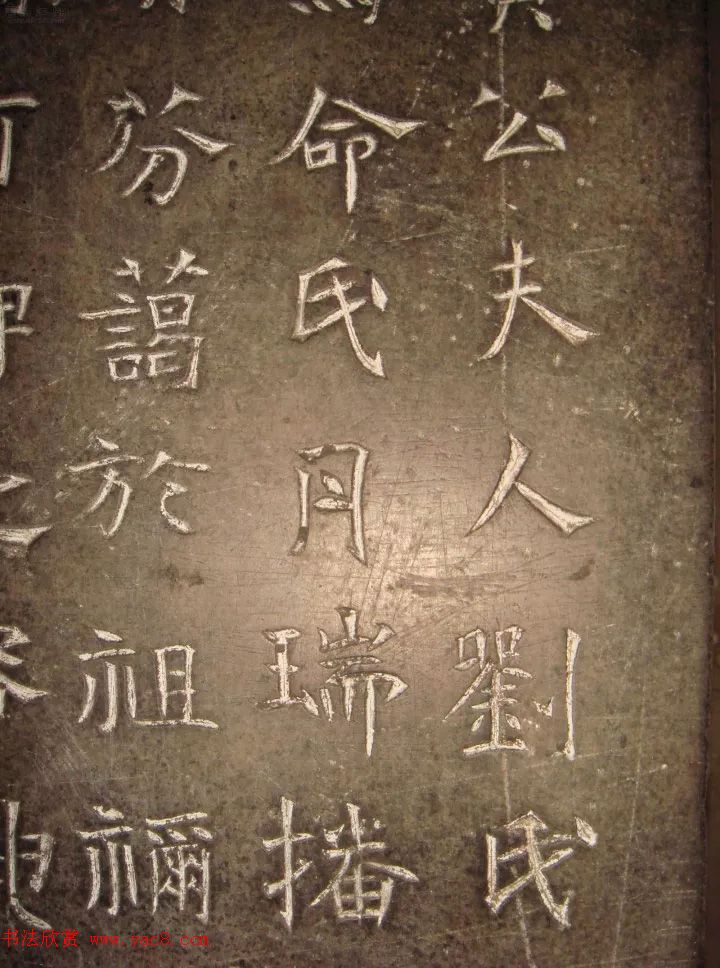 公夫人劉氏
命氏月瑞播
芬藹於祖禰
书法欣赏 www.yac8.com